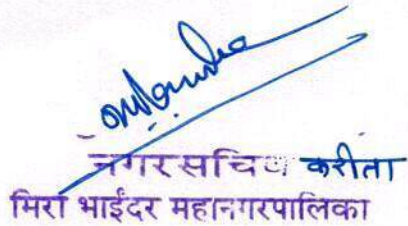 नगरसचिव करीता
मिरा भाईंदर महानगरपालिका